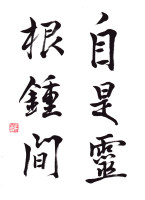 自是靈
根鍾間